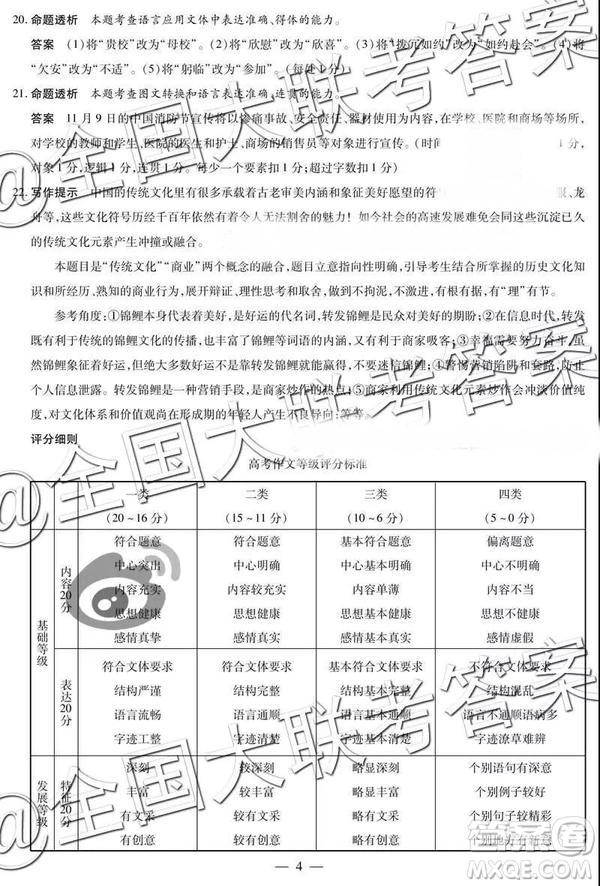 20. 命题透析 本题考查语言应用文体中表达准确、得体的能力。
答案 (1)将“贵校”改为“母校”。(2)将“欣慰”改为“欣喜”。(3)将“拨冗如约”改为“如约赴会”。(4)将
“欠安”改为“不适”。(5)将“躬临”改为“参加”。(每处1分)
21. 命题透析 本题考查图文转换和语言表达准确、连贯的能力。
答案 11月9日的中国消防节宣传将以惨痛事故、安全责任、器材使用为内容,在学校、医院和商场等场所,
对学校的教师和学生、医院的医生和护士、商场的销售员等对象进行宣传。(时间 1分,
对象1分,逻辑1分,连贯1分。每少一个要素扣1分;超过字数扣1分)
22. 写作提示 中国的传统文化里有很多承载着古老审美内涵和象征美好愿望的符 、龙
舟等,这些文化符号历经千百年依然有着令人无法割舍的魅力!如今社会的高速发展难免会同这些沉淀已久
的传统文化元素产生冲撞或融合。
本题目是“传统文化”“商业”两个概念的融合,题目立意指向性明确,引导考生结合所学的历史文化知
识和所经历、熟知的商业行为,展开讨论与辩证思考,做到不拘泥,不偏激,有“理”有节。
参考角度:①锦鲤本身代表着美好,是好运的代名词,转发锦鲤是民众对美好的期盼;②在信息时代,转发
既有利于传统的锦鲤文化的传播,也丰富了锦鲤等词语的内涵,又有利于商家吸客;③幸福需要努力奋斗,虽
然锦鲤象征着好运,但绝大多数好运不是靠转发锦鲤就能赢得,不要迷信锦鲤;④警惕营销陷阱和套路,防止
个人信息泄露。转发锦鲤是一种营销手段,是商家炒作的热点;⑤商家利用传统文化元素炒作会冲淡价值纯
度,对文化体系和价值观尚在形成期的年轻人产生不良导向;等等。
评分细则
高考作文等级评分标准
一类 二类 三类 四类
(20~16分) (15~11分) (10~6分) (5~0分)
基础等级
内容20分
符合题意 符合题意 基本符合题意 偏离题意
中心突出 中心明确 中心基本明确 中心不明确
内容充实 内容较充实 内容单薄 内容不当
思想健康 思想健康 思想基本健康 思想不健康
感情真挚 感情真实 感情基本真实 感情虚假
表达20分
符合文体要求 符合文体要求 基本符合文体要求 不符合文体要求
结构严谨 结构完整 结构基本完整 结构混乱
语言流畅 语言通顺 语言基本通顺 语言不通顺语病多
字迹工整 字迹清楚 字迹基本清楚 字迹潦草难辨
发展等级
特征20分
深刻 较深刻 略显深刻 个别语句有深意
丰富 较丰富 略显丰富 个别例子较好
有文采 较有文采 略有文采 个别句子较精彩
有创意 较有创意 略有创意 个别地方有新意
— 4 —
@全国大联考答案
答案圈
MXQE.COM